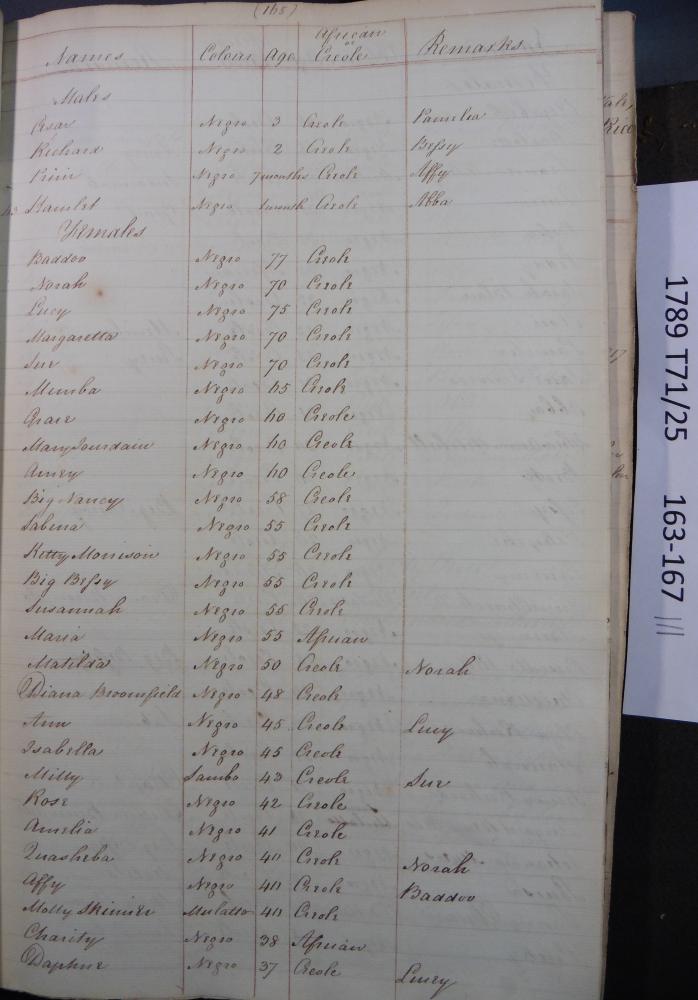 (165)
Names Colour Age African or Creole Remarks
Males
Cesar Negro 3 Creole Pamelia
Richard Negro 2 Creole Bessy
Negro 7 months Creole Affy
Hamlet Negro 1 month Creole Abba
Females
Baddoo Negro 77 Creole
Norah Negro 70 Creole
Lucy Negro 75 Creole
Margaretta Negro 70 Creole
Sue Negro 70 Creole
Mimba Negro 65 Creole
Grace Negro 60 Creole
Mary Jourdain Negro 60 Creole
Amey Negro 60 Creole
Big Nancy Negro 58 Creole
Sabina Negro 55 Creole
Kitty Morrison Negro 55 Creole
Big Bessy Negro 55 Creole
Susannah Negro 55 Creole
Maria Negro 55 African
Matilda Negro 50 Creole Norah
Diana Broomfield Negro 48 Creole
Ann Negro 45 Creole Lucy
Isabella Negro 45 Creole
Milly Sambo 43 Creole Sue
Rose Negro 42 Creole
Amelia Negro 41 Creole
Quasheba Negro 40 Creole Norah
Affy Negro 40 Creole Baddoo
Molly Skinner Mulatto 40 Creole
Charity Negro 38 African
Daphne Negro 37 Creole Lucy
1789 T71/25 163-167